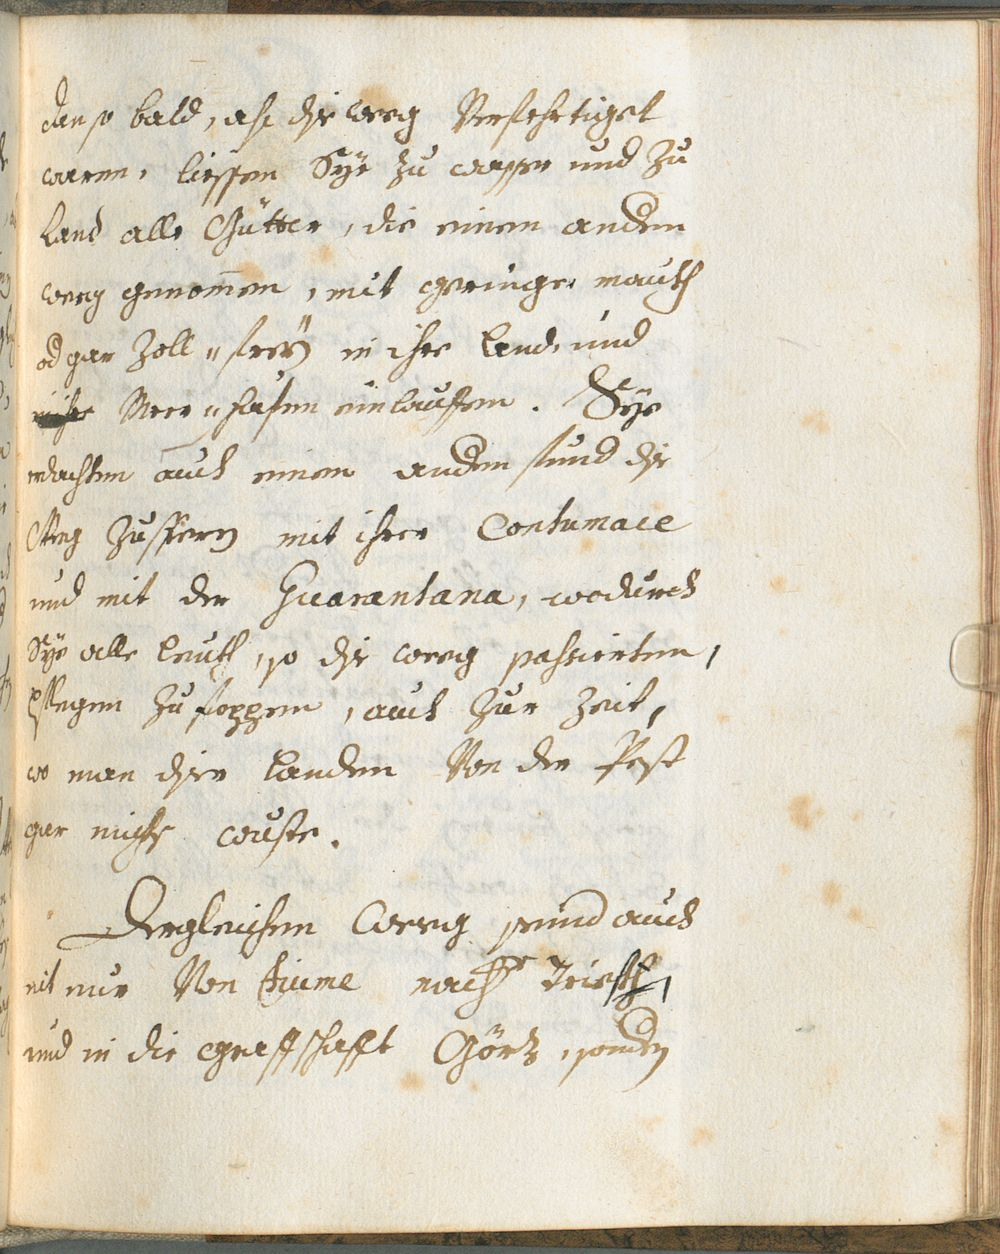 dan so bald, als die weeg Verfehrtiget
waren, liessen Sÿe zu wasser und zu
land alle Gütter, die einen andern
weeg genom̄en, mit geringer mauth
od gar Zoll=freÿ in ihre Land, und
Meer=hafen einlauffen. Sÿe
machten auch einen andern fund die
weeg Zusperren mit ihrer Contumace
und mit der Guarantana, wodurch
Sÿe alle leuth, so die weeg passierten,
pflegen Zu foppen, auch zur Zeit,
wo man dieser landen Von der Pest
gar nichts wuste.
Dergleichen weeg seind auch
nit nur Von Fiume nach Triest,
und in die graffschafft Görtz, sondern